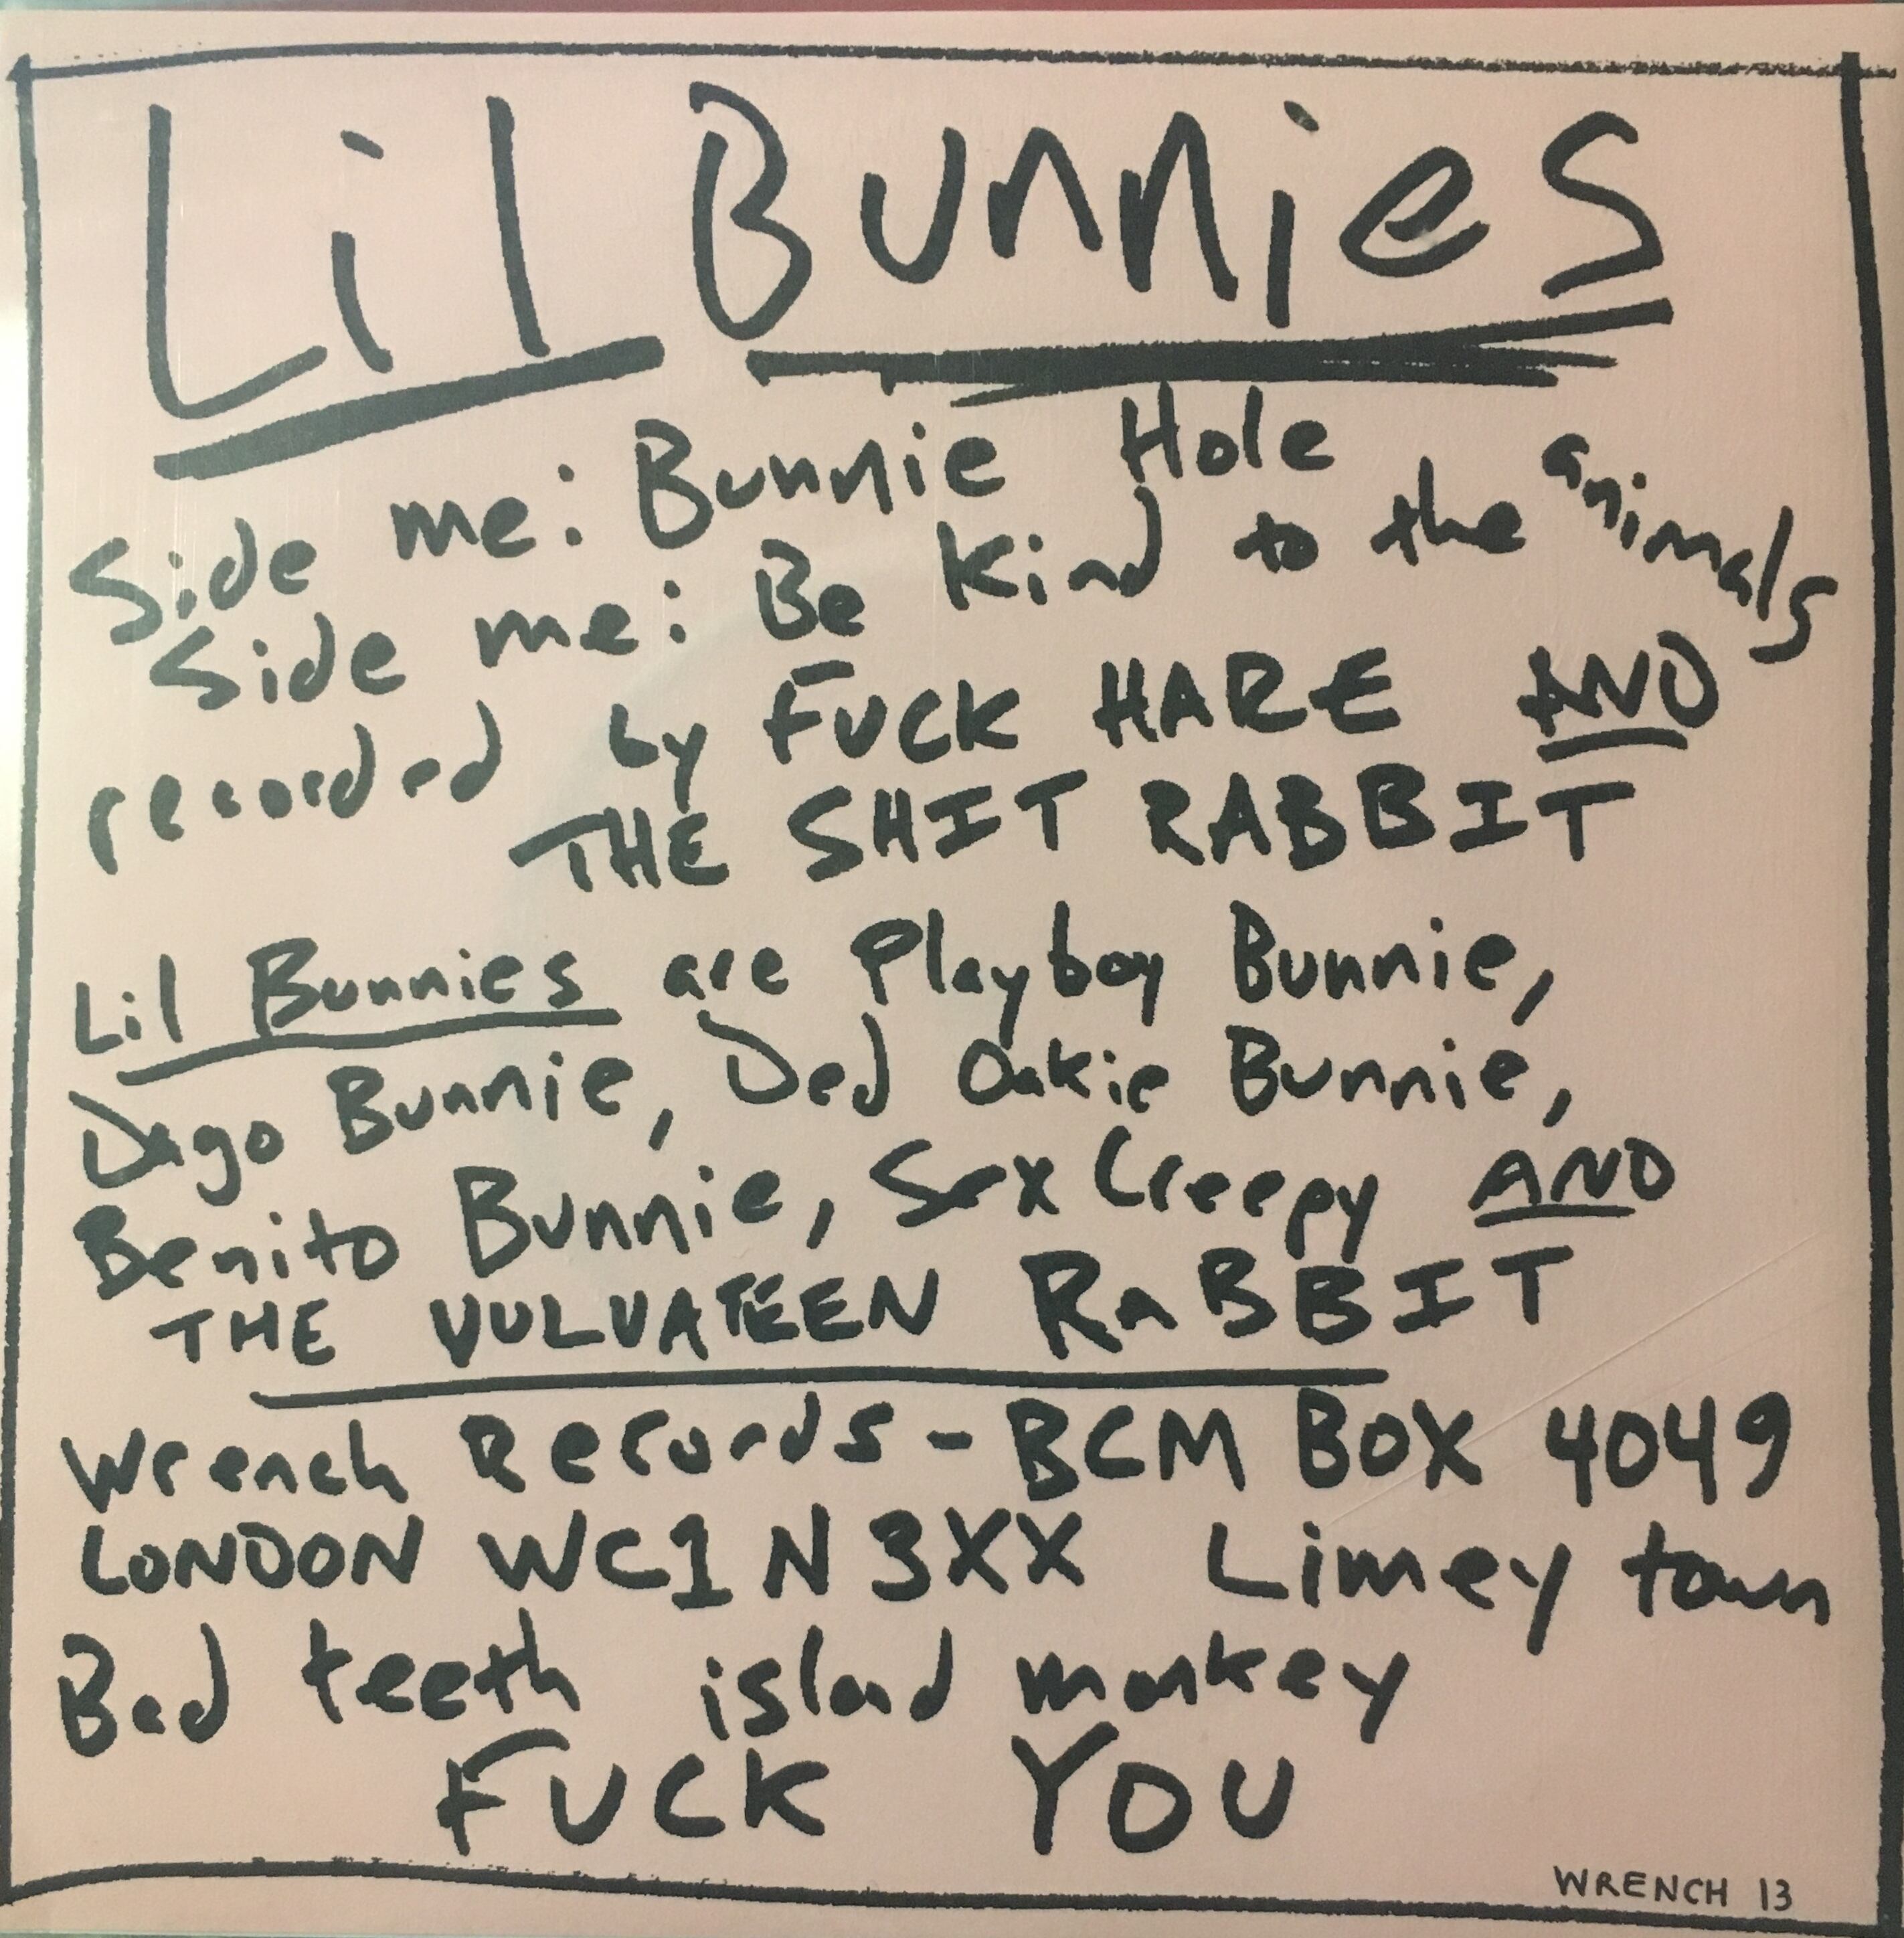 Lil Bunnies
Side me: Bunnie Hole
Side me: Be Kind to the animals
recorded by FUCK HARE AND
THE SHIT RABBIT
Lil Bunnies are Playboy Bunnie,
Dago Bunnie, Ded Oakie Bunnie,
Benito Bunnie, Sex Creepy AND
THE VULVATEEN RaBBIT
Wrench Records - BCM BOX 4049
LONDON WC1N 3XX Limey town
Bad teeth island monkey
FUCK YOU
WRENCH 13